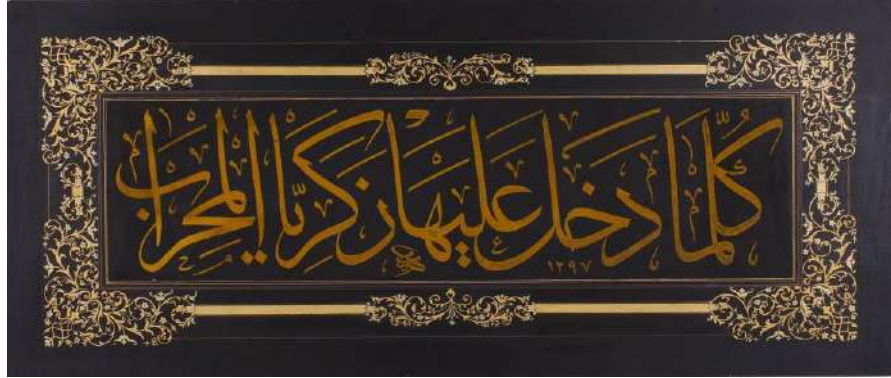 كُلَّمَا دَخَلَ عَلَيْهَا زَكَرِيَّا الْمِحْرَابَ
١٢٩٧